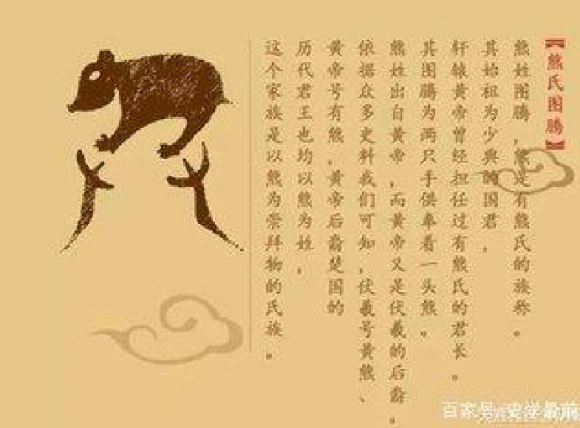 【熊氏图腾】
熊姓图腾，熊是有熊氏的族称。
其始祖为少典的国君，
轩辕黄帝曾经担任过有熊氏的君长。
其图腾为两只手供奉着一头熊。
熊姓出自黄帝，而黄帝又是伏羲的后裔。
依据众多史料我们可知，伏羲号黄熊、
黄帝号有熊，黄帝后裔楚国的
历代君王也均以熊为姓，
这个家族是以熊为崇拜物的氏族。
百家号